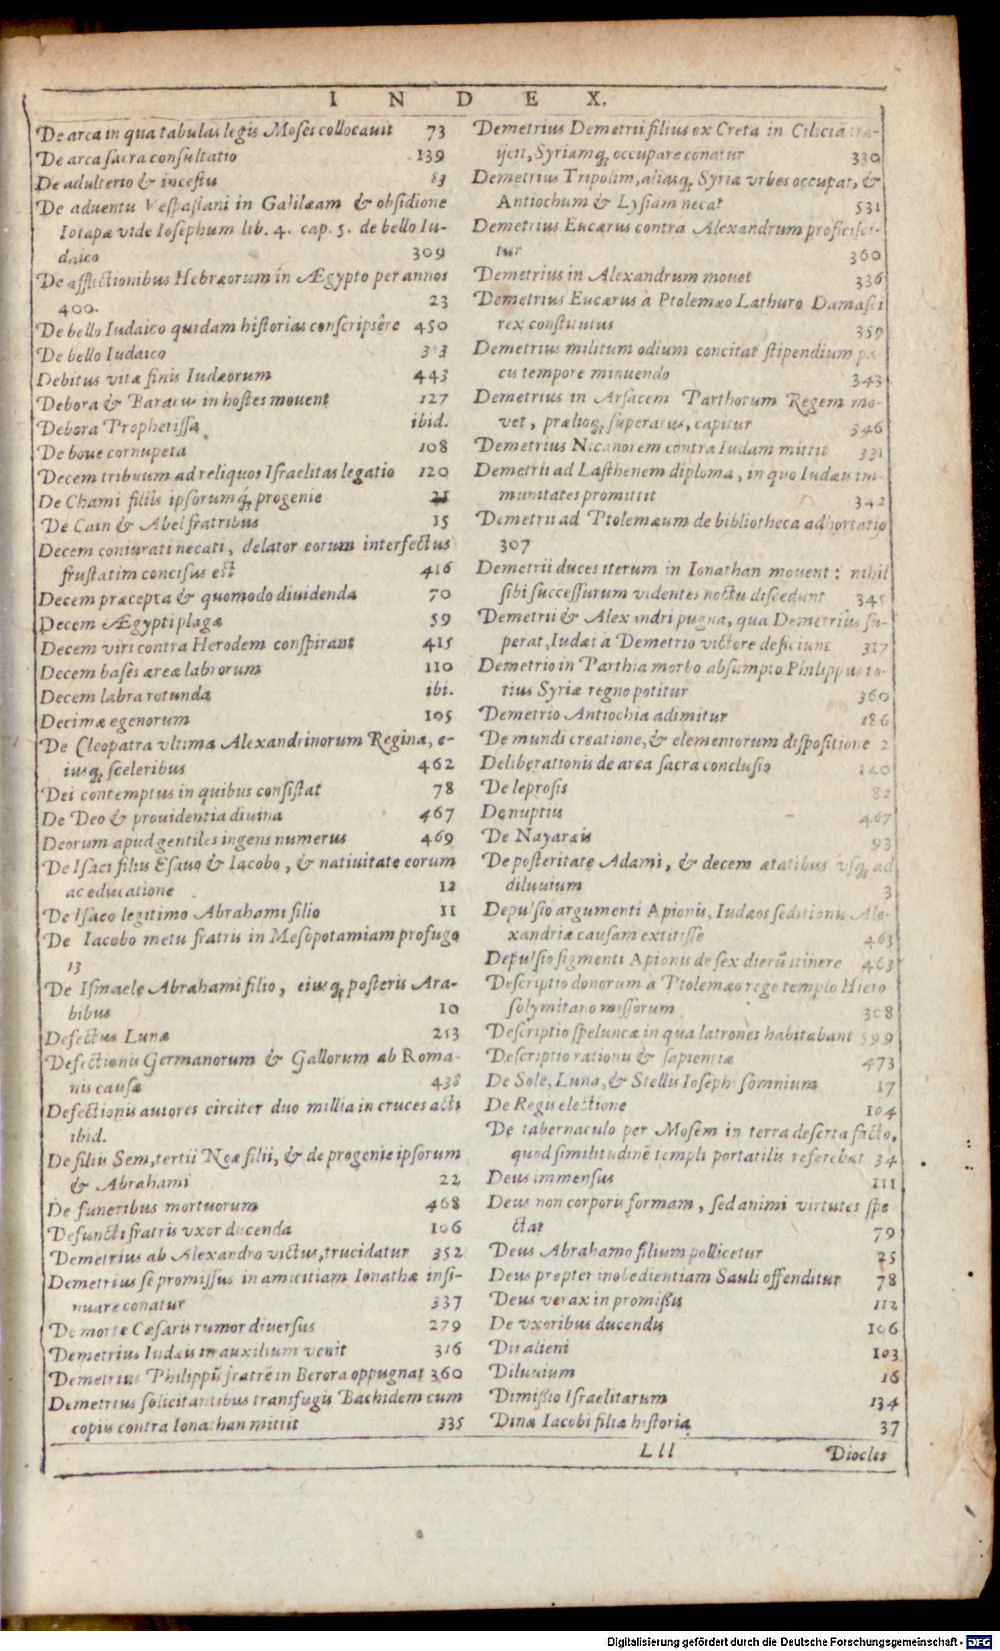 INDEX.
De arca in qua tabulas legis Moses collocauit 73
De arca sacra consultatio 139
De adulterio & incestu 83
De aduentu Vespasiani in Galilæam & obsidione
Iotapæ vide Iosephum lib. 4. cap. 5. de bello Iu-
daico 309
De afflictionibus Hebræorum in Ægypto per annos
400. 23
De bello Iudaico quidam historias conscripsêre 450
De bello Iudaico 313
Debitus vitæ finis Iudæorum 443
Debora & Baracus in hostes mouent 127
Debora Prophetissa ibid.
De boue cornupeta 108
Decem tribuum ad reliquos Israelitas legatio 120
De Chami filiis ipsorumq́; progenie 21
De Cain & Abel fratribus 15
Decem coniurati necati, delator eorum interfectus
frustatim concisus est 416
Decem præcepta & quomodo diuidenda 70
Decem Ægypti plagæ 59
Decem viri contra Herodem conspirant 415
Decem bases æreæ labrorum 110
Decem labra rotunda ibi.
Decimæ egenorum 105
De Cleopatra vltima Alexandrinorum Regina, e-
iusq; sceleribus 462
Dei contemptus in quibus consistat 78
De Deo & prouidentia diuina 467
Deorum apud gentiles ingens numerus 469
De Isaci filiis Esauo & Iacobo, & natiuitate eorum
ac educatione 12
De Isaco legitimo Abrahami filio 11
De Iacobo metu fratris in Mesopotamiam profugo
13
De Ismaele Abrahami filio, eiusq; posteris Ara-
bibus 10
Defectus Lunæ 253
Defectionis Germanorum & Gallorum ab Roma-
nis causæ 438
Defectionis autores circiter duo millia in cruces acti
ibid.
De filiis Sem, tertii Noæ filii, & de progenie ipsorum
& Abrahami 22
De funeribus mortuorum 468
Defuncti fratris vxor ducenda 106
Demetrius ab Alexandro victus, trucidatur 352
Demetrius se promissus in amicitiam Ionathæ insi-
nuare conatur 337
De morte Cæsaris rumor diuersus 279
Demetrius Iudæis in auxilium venit 316
Demetrius Philippũ fratrẽ in Berora oppugnat 360
Demetrius solicitantibus transfugis Bachidem cum
copiis contra Ionathan mittit 335
Demetrius Demetrii filius ex Creta in Ciliciã tra-
ijcit, Syriamq; occupare conatur 330
Demetrius Tripolim, aliasq; Syriæ vrbes occupat, &
Antiochum & Lysiam necat 531
Demetrius Eucærus contra Alexandrum proficisci-
tur 360
Demetrius in Alexandrum mouet 336
Demetrius Eucærus à Ptolemæo Lathuro Damasci
rex constitutus 359
Demetrius militum odium concitat stipendium pa-
cis tempore minuendo 343
Demetrius in Arsacem Parthorum Regem mo-
uet, prælioq; superatus, capitur 346
Demetrius Nicanorem contra Iudam mittit 331
Demetrii ad Lasthenem diploma, in quo Iudæis im-
munitates promittit 342
Demetrii ad Ptolemæum de bibliotheca adhortatio
307
Demetrii duces iterum in Ionathan mouent: nihil
sibi successurum videntes noctu discedunt 345
Demetrii & Alexandri pugna, qua Demetrius su-
perat, Iudæi à Demetrio victore deficiunt 317
Demetrio in Parthia morbo absumpto Philippus to-
tius Syriæ regno potitur 360
Demetrio Antiochia adimitur 186
De mundi creatione, & elementorum dispositione 2
Deliberationis de arca sacra conclusio 140
De leprosis 82
De nuptiis 467
De Nazaræis 93
De posteritate Adami, & decem ætatibus vsq; ad
diluuium 3
Depulsio argumenti Apionis, Iudæos seditionis Ale-
xandriæ causam extitisse 463
Depulsio figmenti Apionis de sex dierũ itinere 463
Descriptio donorum a Ptolemæo rege templo Hiero
solymitano missorum 308
Descriptio speluncæ in qua latrones habitabant 599
Descriptio rationis & sapientiæ 473
De Sole, Luna, & Stellis Iosephi somnium 17
De Regis electione 104
De tabernaculo per Mosem in terra deserta facto,
quod similitudinẽ templi portatilis referebat 34
Deus immensus 111
Deus non corporis formam, sed animi virtutes spe
ctat 79
Deus Abrahamo filium pollicetur 25
Deus propter inobedientiam Sauli offenditur 78
Deus verax in promissis 112
De vxoribus ducendis 106
Dii alieni 103
Diluuium 16
Dimissio Israelitarum 134
Dinæ Iacobi filiæ historia 37
Lll Diocles
Digitalisierung gefördert durch die Deutsche Forschungsgemeinschaft - DFG